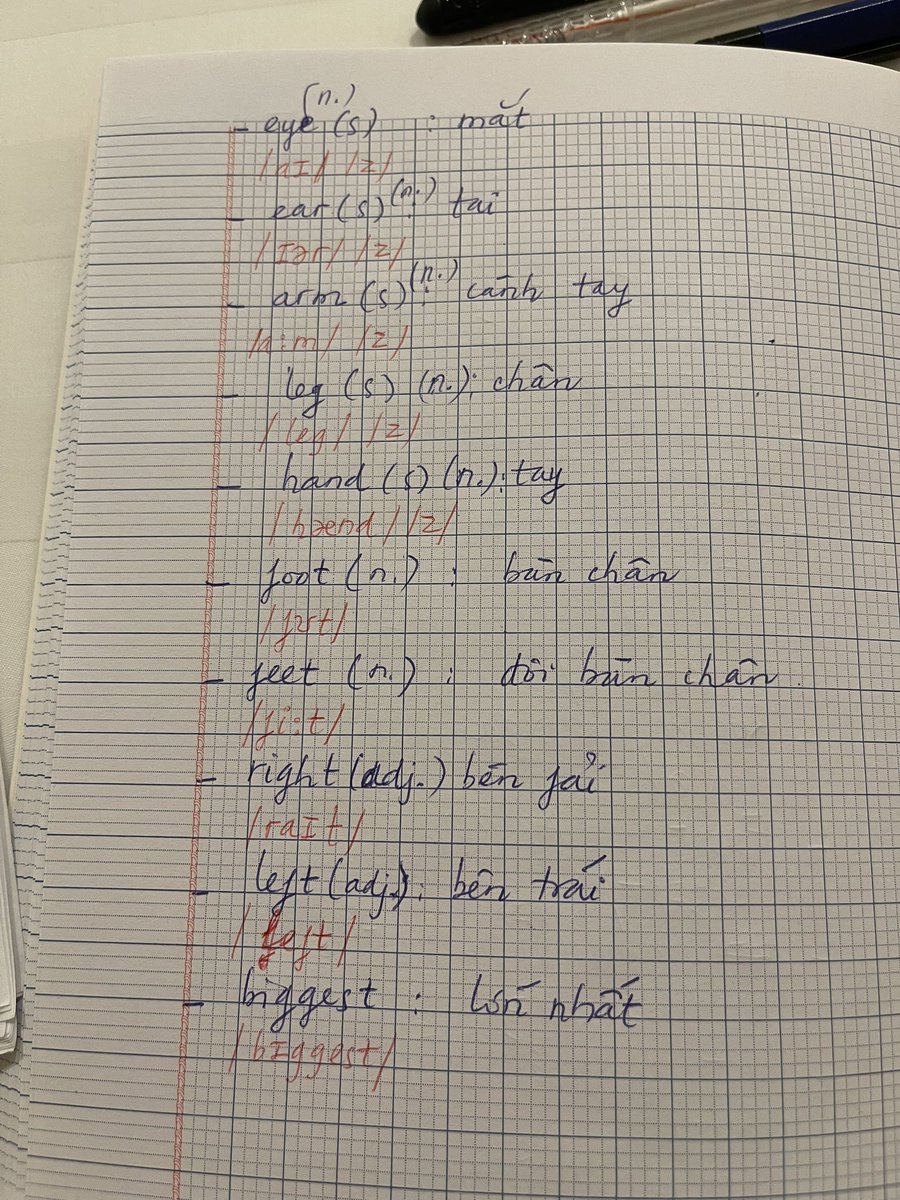 - eye(s) (n.) : mắt
/aɪ/ /z/
- ear(s) (n.) : tai
/ɪər/ /z/
- arm (s) (n.) : cánh tay
/a:m/ /z/
- leg (s) (n.) : chân
/leg/ /z/
- hand (s) (n.) : tay
/hænd/ /z/
- foot (n.) : bàn chân
/fʊt/
- feet (n.) : đôi bàn chân.
/fi:t/
- right (adj.) bên fải
/raɪt/
- left (adj.) : bên trái
/left/
- biggest : lớn nhất
/bɪggest/